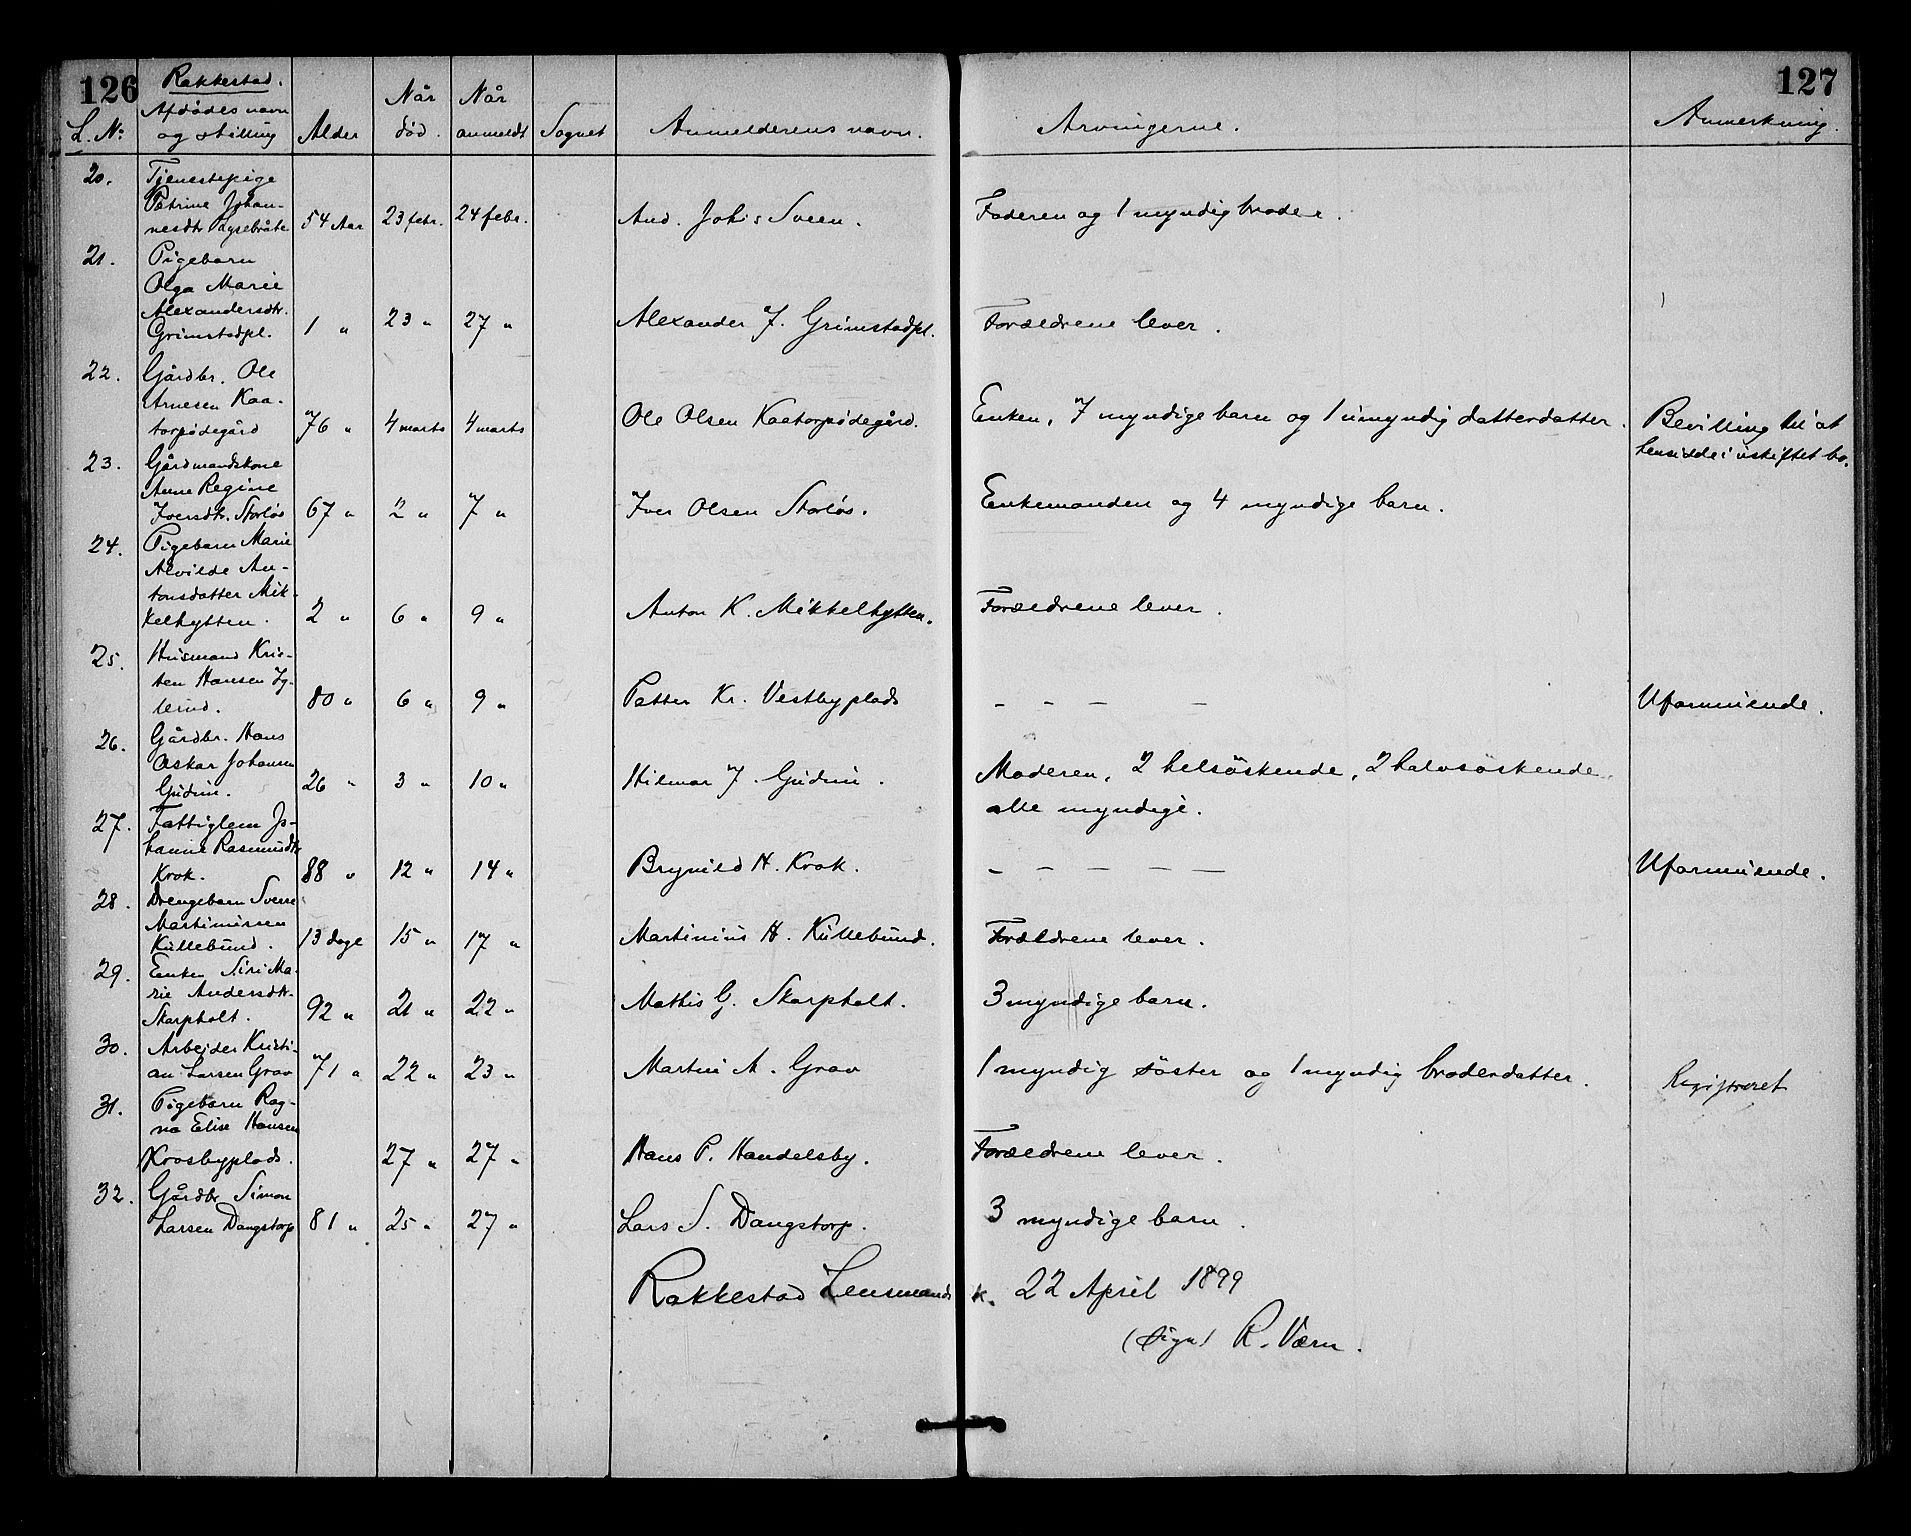 126
Rakkestad.
127
L. No
Afdødes navn
og stilling
Alder
Når
død.
Når
anmeldt
Sognet
Anmelderens navn.
Arvingerne.
Anmerkning.
20.
Tjenestepige
Petrine Johan-
nesdtr Lysebråte
54 Aar
23 febr.
24 febr.
And. Johs Sveen.
Faderen og 1 myndig broder.
21.
Pigebarn
Olga Marie
Alexandersdtr.
Grimstadpl.
1 "
23 "
27 "
Alexander J. Grimstadpl.
Forældrene lever.
22.
Gårdbr. Ole
Arnesen Kaa-
torpødegård
76 "
4 marts
4 marts
Ole Olsen Kaatorpødegård.
Enken, 7 myndige barn og 1 umyndig datterdatter.
Bevilling til at
hensidde i uskiftet bo.
23.
Gårdmandskone
Anne Regine
Iversdtr. Storløs
67 "
2 "
7 "
Iver Olsen Storløs.
Enkemanden og 4 myndige barn.
24.
Pigebarn Marie
Alvilde An-
tonsdatter Mik-
kelhytten.
2 "
6 "
9 "
Anton K. Mikkelhytten.
Forældrene lever.
25.
Husmand Kris-
ten Hansen Ig-
lerud.
80 "
6 "
9 "
Petter Kr. Vestbyplads
- - - -
Uformuende.
26.
Gårdbr. Hans
Oskar Johansen
Gudim.
26 "
3 "
10 "
Hilmar J. Gudim.
Moderen, 2 helsöskende, 2 halvsöskende
alle myndige.
27.
Fattiglem Jo-
hanne Rasmusdtr
Krok.
88 "
12 "
14 "
Brynild H. Krok.
- - - - -
Uformuende.
28.
Drengebarn Sverre
Martiniusen
Kullebund.
13 dage
15 "
17 "
Martinius H. Kullebund.
Forældrene lever.
29.
Enken Siri Ma-
rie Andersdtr.
Skarpholt.
92 "
21 "
22 "
Mathis G. Skarpholt.
3 myndige barn.
30.
Arbeider Kristi-
an Larsen Grav
71 "
22 "
23 "
Martin A. Grav
1 myndig söster og 1 myndig broderdatter.
Registreret
31.
Pigebarn Rag-
na Elise Hansen
Krosbyplads.
27 "
27 "
Hans P. Handelsby.
Forældrene lever.
32.
Gårdbr Simon
Larsen Dangstorp
81 "
25 "
27 "
Lars S. Dangstorp.
3 myndige barn.
Rakkestad Lensmandsk. 22 April 1899
(sign) R. Værn.